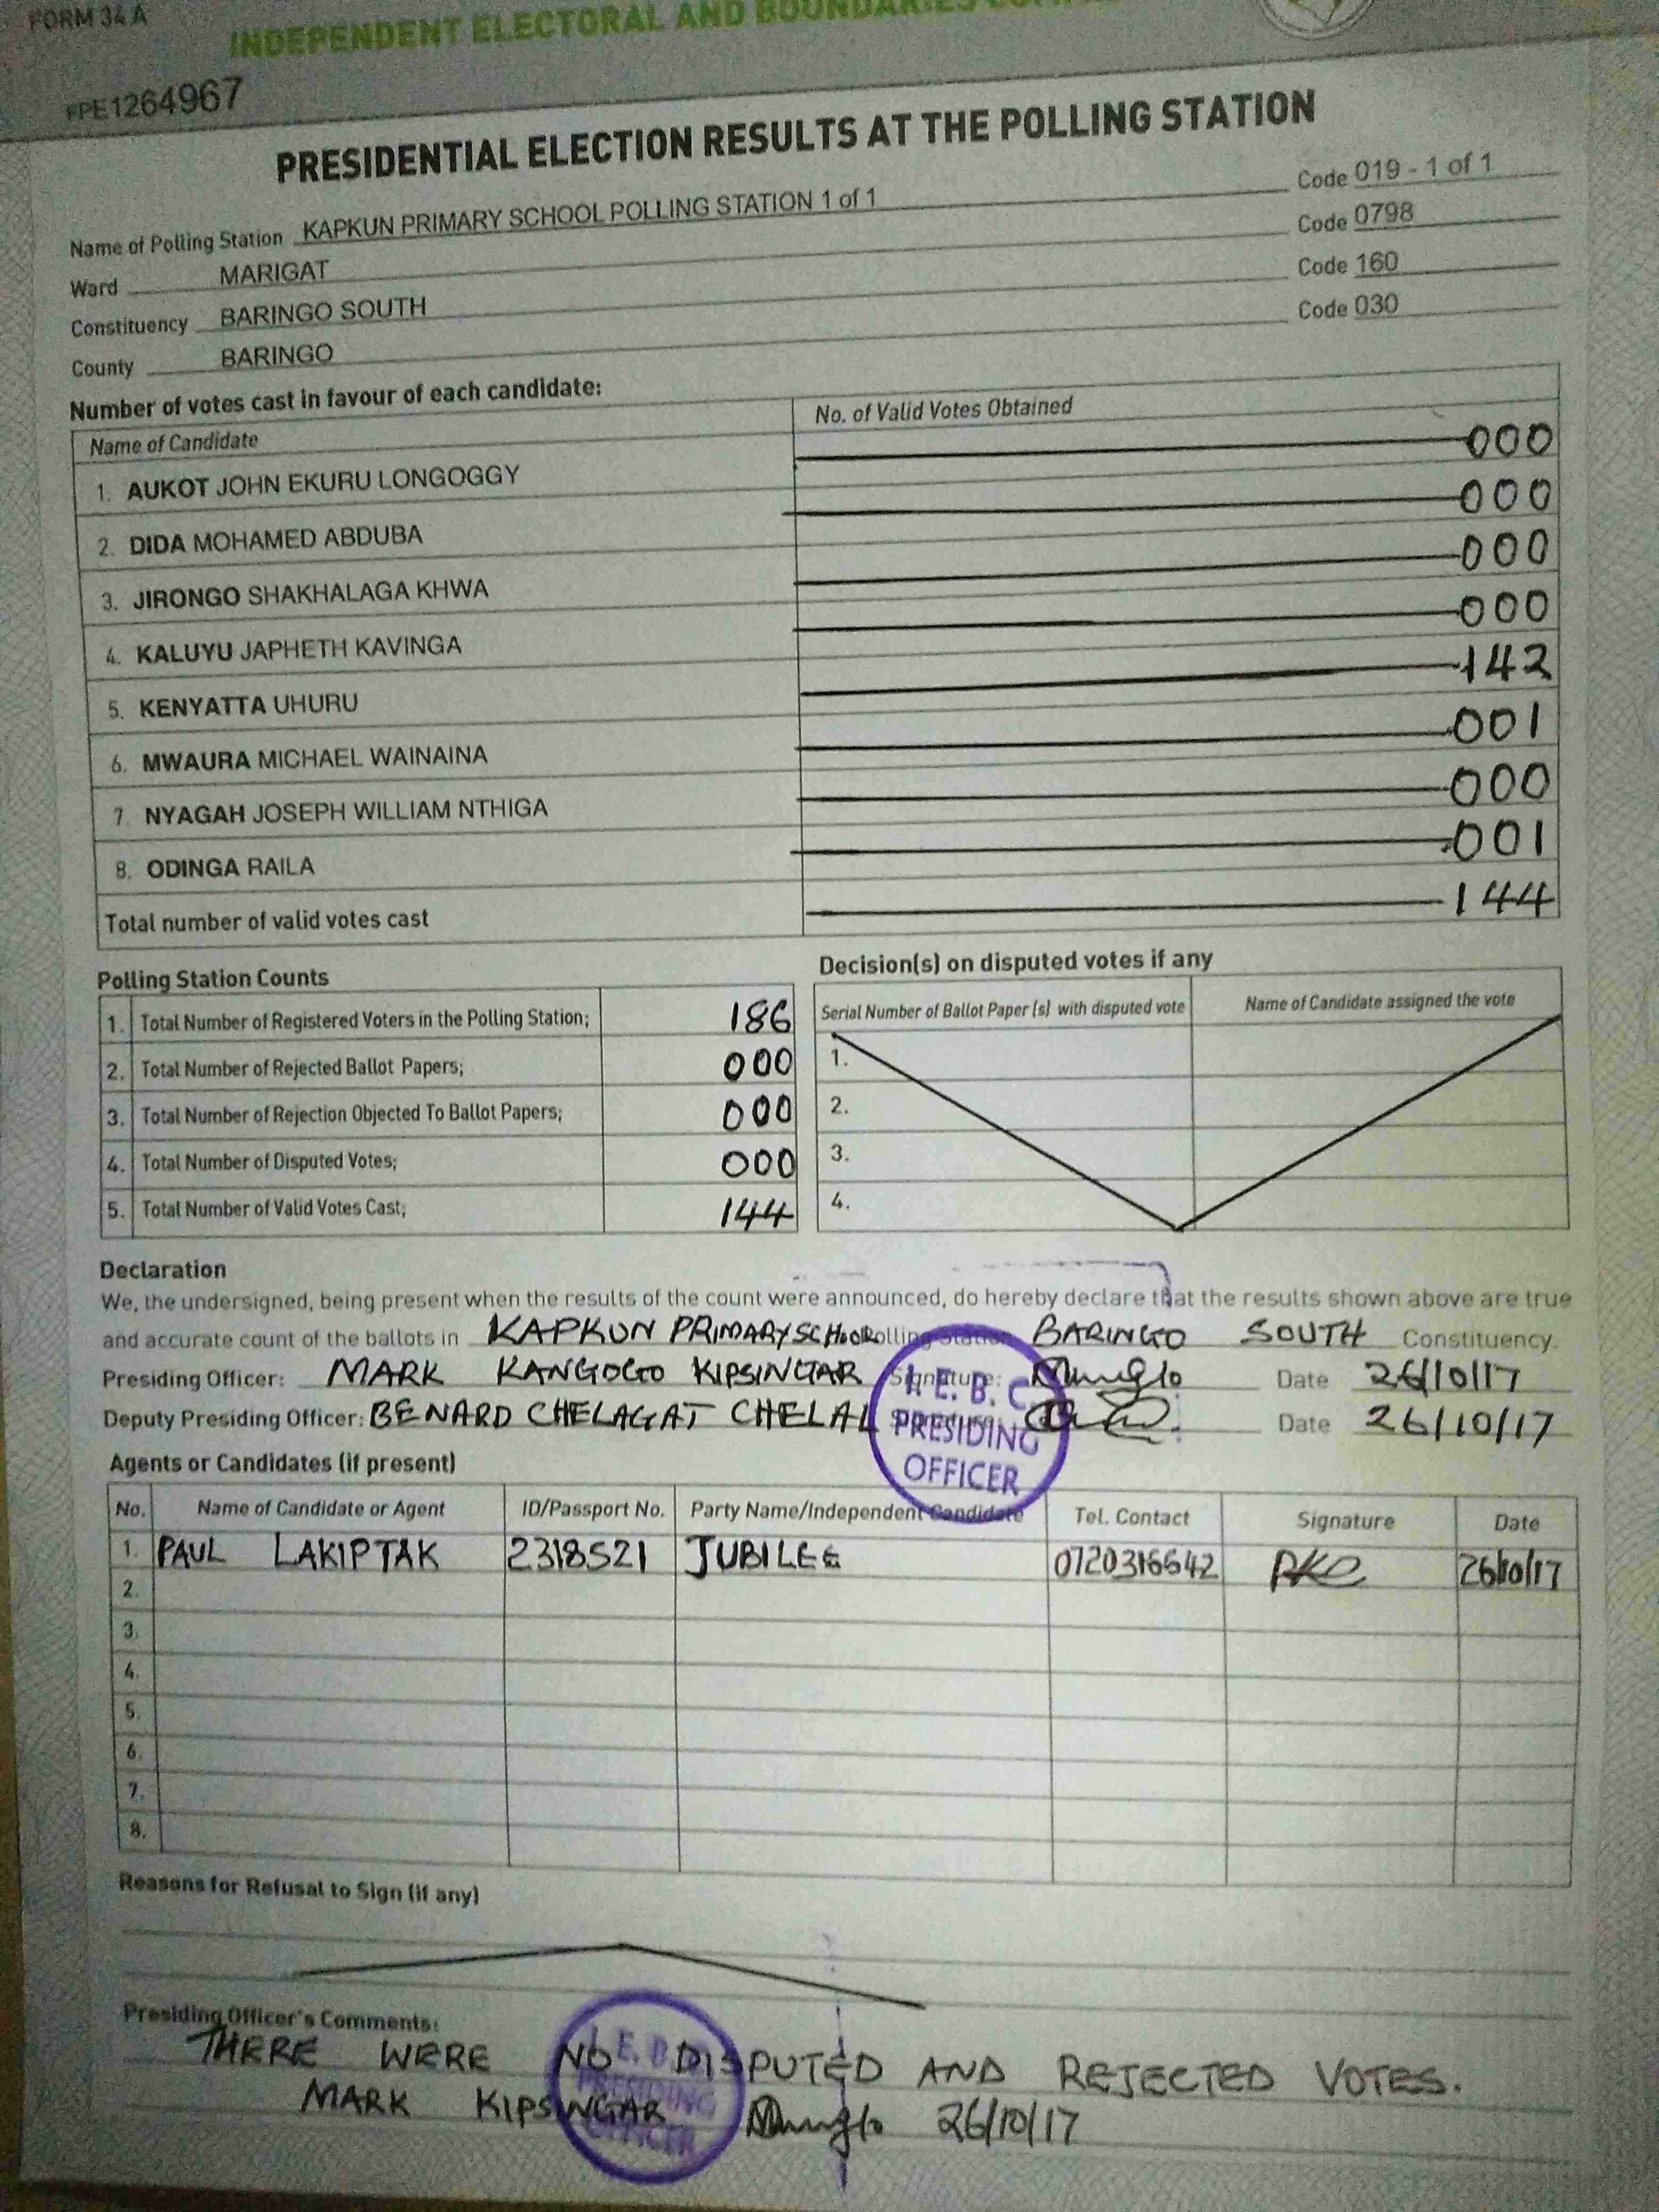 FORM 34 A
INDEPENDENT ELECTORAL AND BOUNDARIES
FPE1264967
PRESIDENTIAL ELECTION RESULTS AT THE POLLING STATION
Name of Polling Station KAPKUN PRIMARY SCHOOL POLLING STATION 1 of 1 Code 019 - 1 of 1
Ward MARIGAT Code 0798
Constituency BARINGO SOUTH Code 160
County BARINGO Code 030
Number of votes cast in favour of each candidate:
Name of Candidate No. of Valid Votes Obtained
1. AUKOT JOHN EKURU LONGOGGY 000
2. DIDA MOHAMED ABDUBA 000
3. JIRONGO SHAKHALAGA KHWA 000
4. KALUYU JAPHETH KAVINGA 000
5. KENYATTA UHURU 142
6. MWAURA MICHAEL WAINAINA 001
7. NYAGAH JOSEPH WILLIAM NTHIGA 000
8. ODINGA RAILA 001
Total number of valid votes cast 144
Polling Station Counts
1. Total Number of Registered Voters in the Polling Station; 186
2. Total Number of Rejected Ballot Papers; 000
3. Total Number of Rejection Objected To Ballot Papers; 000
4. Total Number of Disputed Votes; 000
5. Total Number of Valid Votes Cast; 144
Decision(s) on disputed votes if any
Serial Number of Ballot Paper (s) with disputed vote Name of Candidate assigned the vote
1.
2.
3.
4.
Declaration
We, the undersigned, being present when the results of the count were announced, do hereby declare that the results shown above are true
and accurate count of the ballots in KAPKUN PRIMARY SCHOOL Polling Station BARINGO SOUTH Constituency.
Presiding Officer: MARK KANGOGO KIPSINGAR Signature: Date 26/10/17
Deputy Presiding Officer: BENARD CHELAGAT CHELAL Date 26/10/17
I. E. B. C
PRESIDING
OFFICER
Agents or Candidates (if present)
No. Name of Candidate or Agent ID/Passport No. Party Name/Independent Candidate Tel. Contact Signature Date
1. PAUL LAKIPTAK 2318521 JUBILEE 0720316642 26/10/17
2.
3.
4.
5.
6.
7.
8.
Reasons for Refusal to Sign (if any)
Presiding Officer's Comments:
THERE WERE NO DISPUTED AND REJECTED VOTES.
MARK KIPSINGAR 26/10/17
PRESIDING
OFFICER